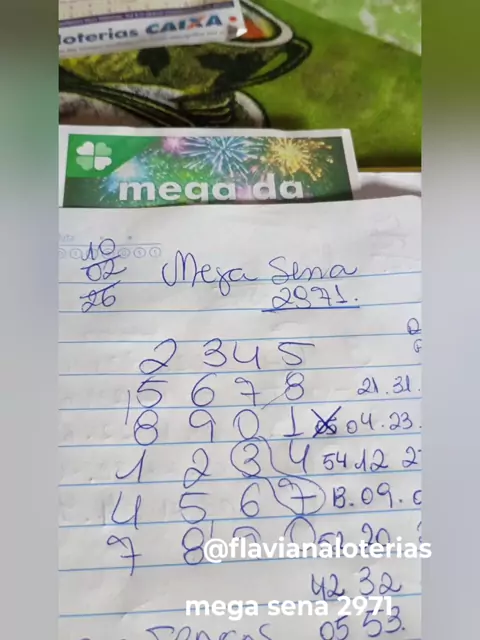 loterias CAIXA
mega da
10
02
26
Mega Sena
2971.
2 3 4 5
5 6 7 8 21.31.
8 9 0 1 04.23.
1 2 3 4 54.12 2
4 5 6 7 B.09.0
7 8 9 0 20
@flavianaloterias
42 32
mega sena 2971
05 53.